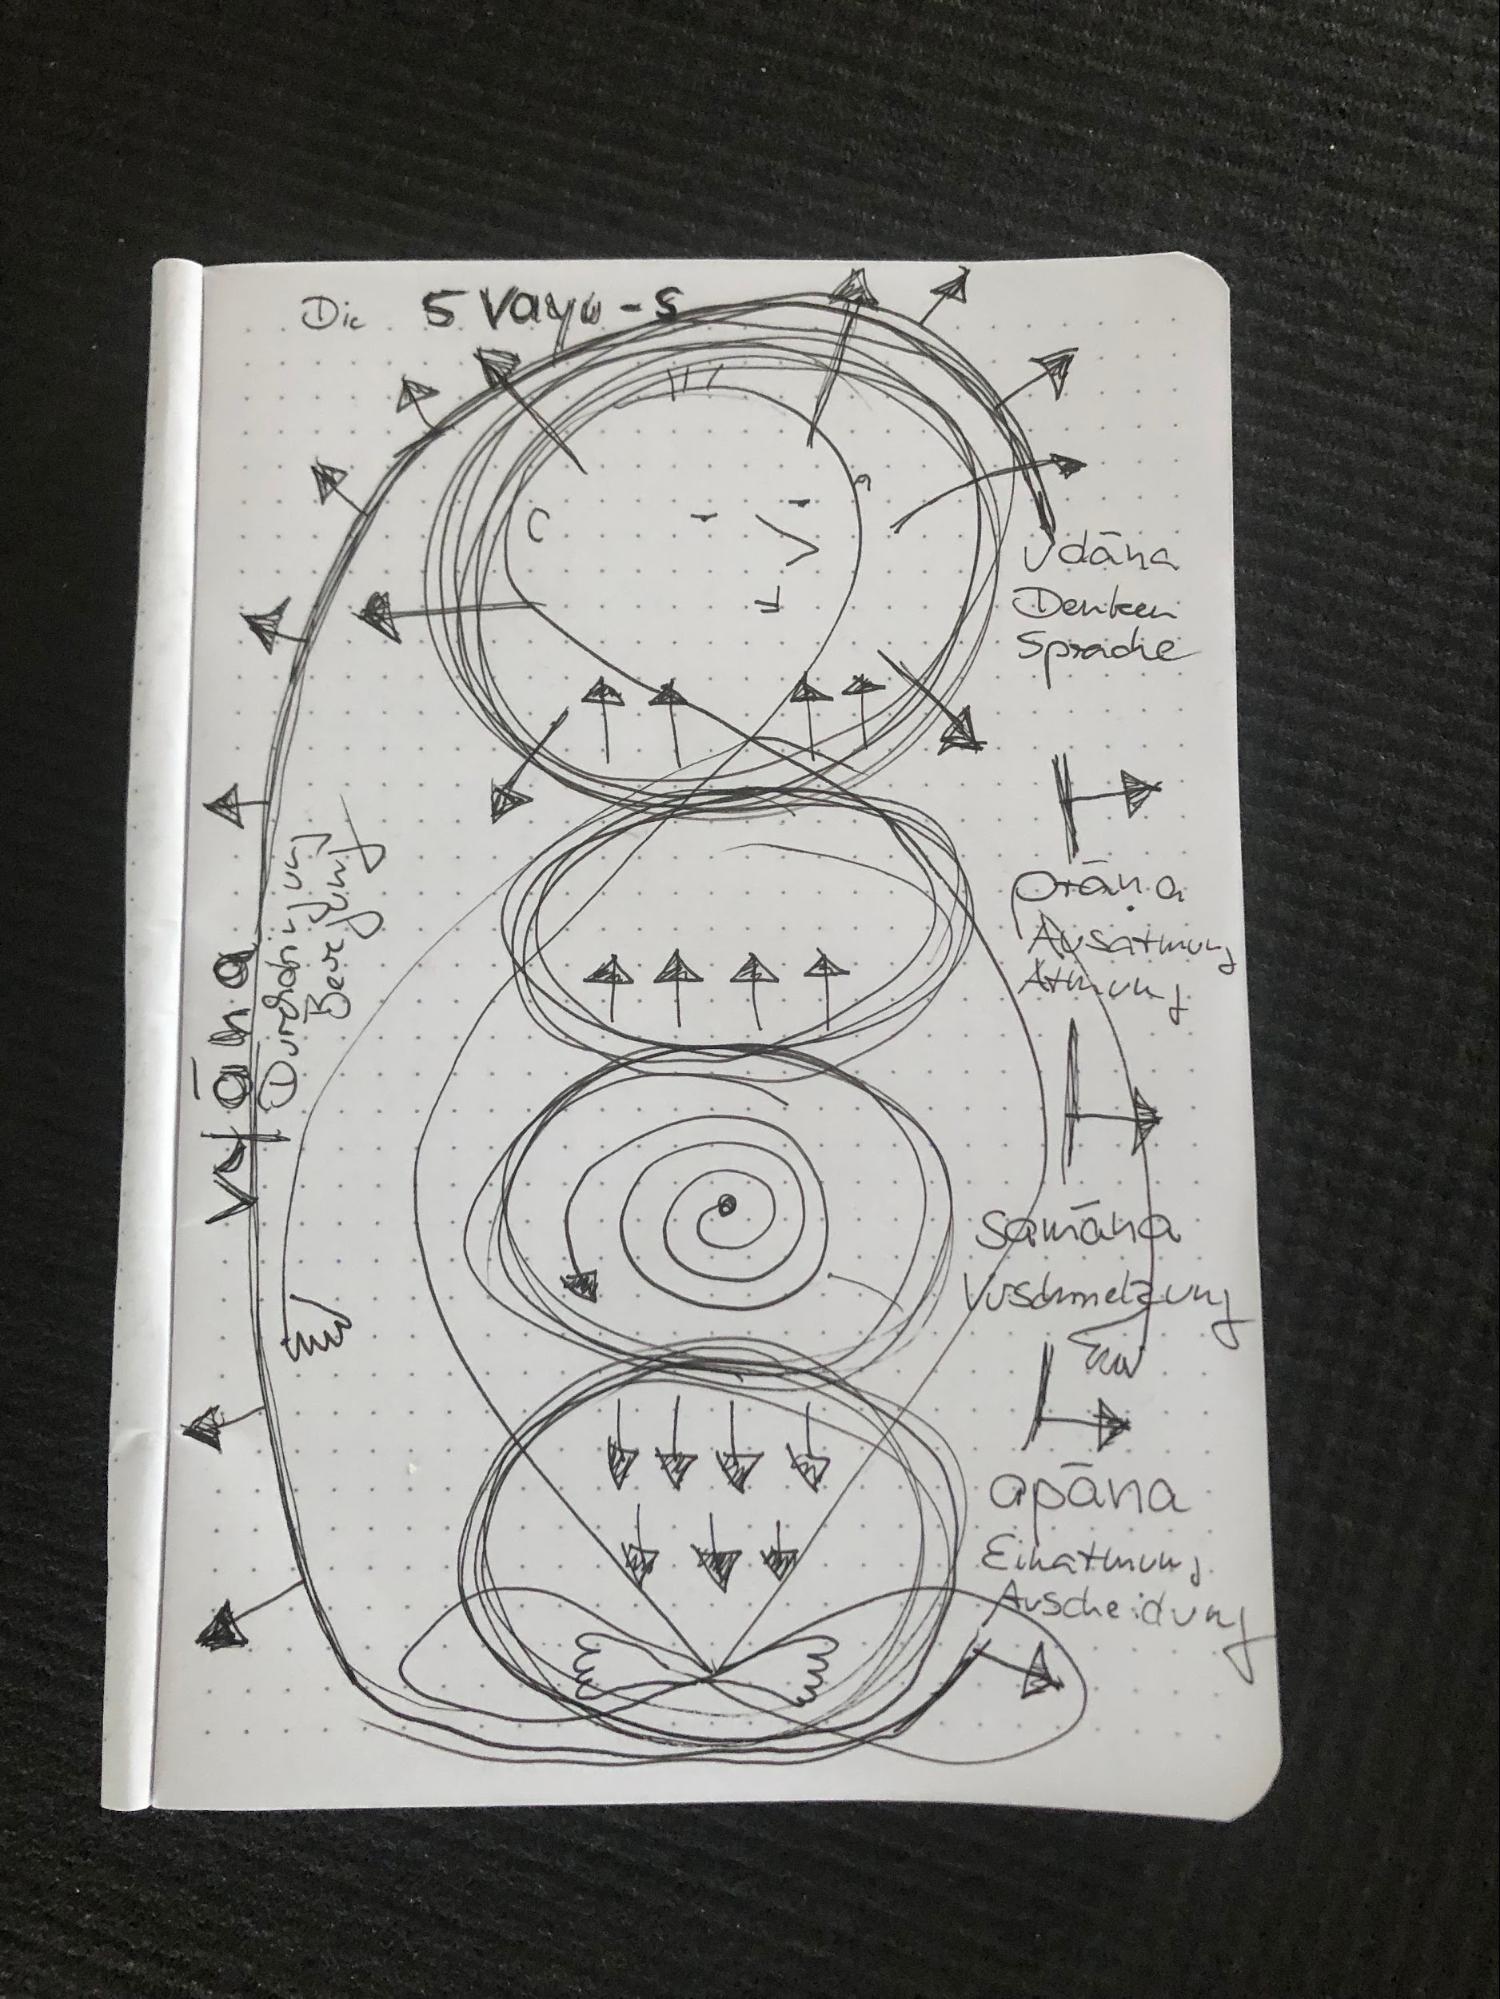 Die 5 Vayu-s
Udāna
Denken
Sprache
prāṇa
Ausatmung
Atmung
samāna
Vuschmelzung
apāna
Einatmung
Auscheidung
vyāna
Durchdringung
Bewegung